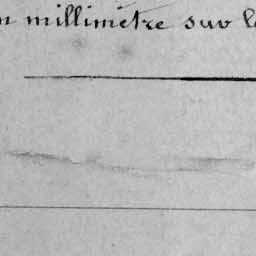 n millimètre sur l